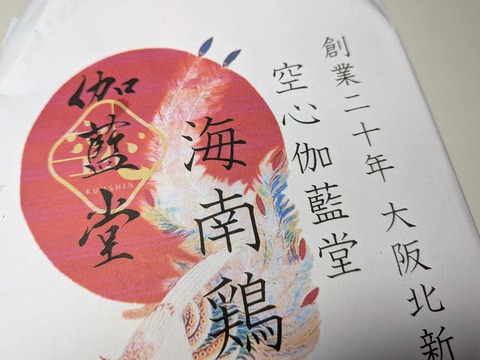 創業二十年 大阪北新
空心伽藍堂
海南鶏
伽藍堂
KUUSHIN